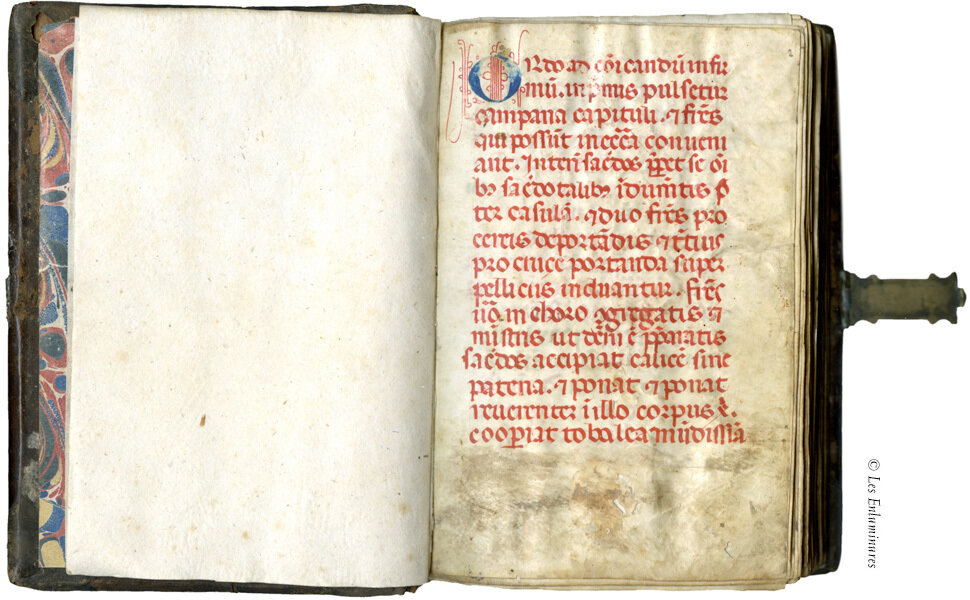 ORdo ad cōicandū infir
mū. in pͥmis pulsetur
campana capituli. ⁊ fr̄es
qui possūt in ecc̄ia conueni
ant. Interī sac̄dos p̄p̄et se oī
bꝫ sac̄dotalibꝫ īdum̄tis p̄
ter casulā. ⁊ duo fr̄es pro
cereis deportādis ⁊ t̄cius
pro cruce portanda super
pelliciis induantur. fr̄es
u͛o in choro ꝯgregatis ⁊
mīstris ut dc̄m ē p̄paratis
sac̄dos accipiat calicē sine
patena. ⁊ ponat ⁊ ponat
reuerenter ī illo corpus x̄.
cooꝑiat tobalea mūdissīa
© Les Enluminures